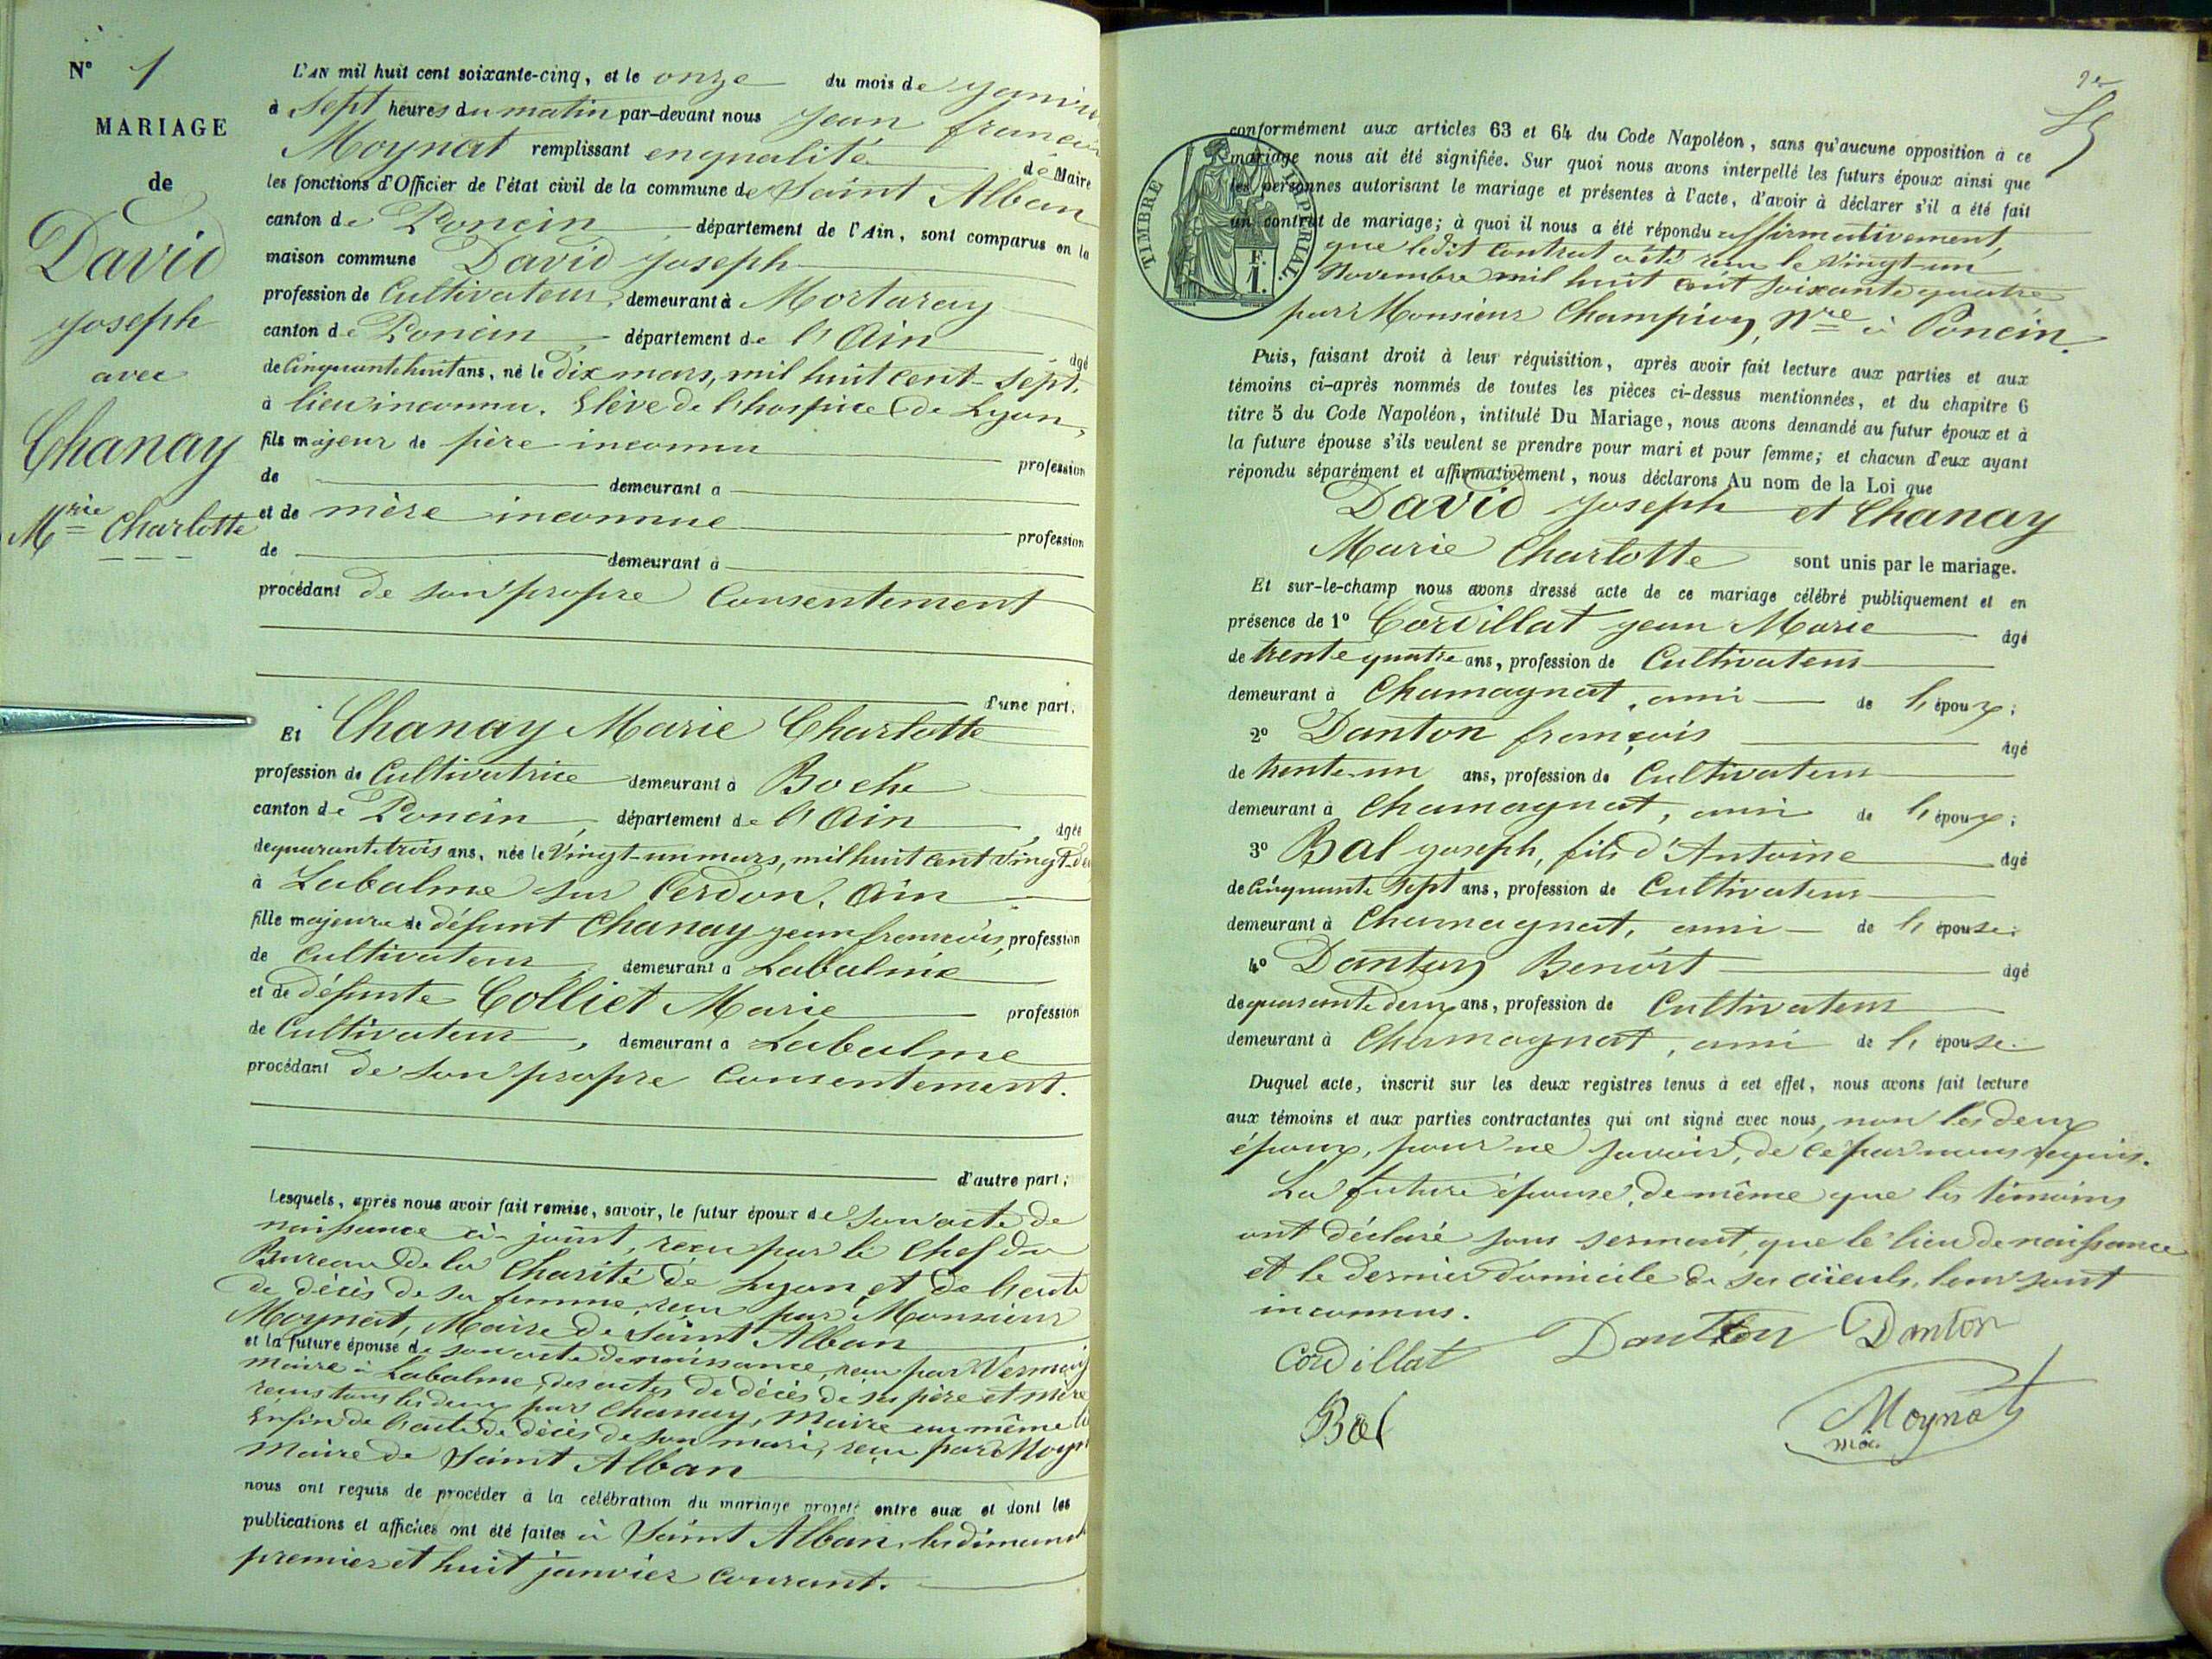 N° 1
MARIAGE
de
David
Joseph
avec
Chanay
Mrie Charlotte
L'AN mil huit cent soixante-cinq, et le onze du mois de Janvier
à sept heures du matin par-devant nous Jean françois
Moynat remplissant en qualité de Maire
les fonctions d'Officier de l'état civil de la commune de Saint Alban
canton de Poncin département de l'Ain, sont comparus en la
maison commune David Joseph
profession de Cultivateur, demeurant à Mortaray
canton de Poncin, département de l'Ain âgé
de Cinquante huit ans, né le dix mars, mil huit cent sept,
à lieu inconnu. Elève de l'hospice de Lyon,
fils majeur de père inconnu profession
de demeurant à
et de mère inconnue profession
de demeurant à
procédant de son propre Consentement
d'une part.
Et Chanay Marie Charlotte
profession de Cultivatrice demeurant à Boche
canton de Poncin, département de l'Ain, âgée
de quarante trois ans, née le Vingt-un mars, mil huit cent Vingt-de
à Labalme sur Cerdon, Ain
fille majeure de défunt Chanay Jean françois, profession
de Cultivateur, demeurant à Labalme
et de défunte Colliet Marie profession
de Cultivateur, demeurant à Labalme
procédant de son propre Consentement.
d'autre part;
Lesquels, après nous avoir fait remise, savoir, le futur époux de son acte de
naissance ci-joint, reçu par le Chef du
Bureau de la Charité de Lyon et de l'acte
de décès de sa femme, reçu par Monsieur
Moynat, Maire de Saint Alban
et la future épouse de son acte de naissance, reçu par
maire à Labalme, des actes de décès de ses père et mère
reçus tous les deux par Chanay, Maire au même
Enfin de l'acte de décès de son mari, reçu par Moyn
Maire de Saint Alban
nous ont requis de procéder à la célébration du mariage projeté entre eux et dont les
publications et affiches ont été faites à Saint Alban, les dimanch
premier et huit janvier courant.
TIMBRE IMPERIAL
1 F.
conformément aux articles 63 et 64 du Code Napoléon, sans qu'aucune opposition à ce
mariage nous ait été signifiée. Sur quoi nous avons interpellé les futurs époux ainsi que
les personnes autorisant le mariage et présentes à l'acte, d'avoir à déclarer s'il a été fait
un contrat de mariage; à quoi il nous a été répondu affirmativement,
que ledit Contrat a été reçu le Vingt-un
Novembre mil huit cent soixante quatre
par Monsieur Champion, Nre à Poncin.
Puis, faisant droit à leur réquisition, après avoir fait lecture aux parties et aux
témoins ci-après nommés de toutes les pièces ci-dessus mentionnées, et du chapitre 6
titre 5 du Code Napoléon, intitulé Du Mariage, nous avons demandé au futur époux et à
la future épouse s'ils veulent se prendre pour mari et pour femme; et chacun d'eux ayant
répondu séparément et affirmativement, nous déclarons Au nom de la Loi que
David Joseph et Chanay
Marie Charlotte sont unis par le mariage.
Et sur-le-champ nous avons dressé acte de ce mariage célébré publiquement et en
présence de 1° Cordillat Jean Marie âgé
de trente quatre ans, profession de Cultivateur
demeurant à Chamagnat, ami de l'époux;
2° Danton françois âgé
de trente-un ans, profession de Cultivateur
demeurant à Chamagnat, ami de l'époux;
3° Bal Joseph, fils d'Antoine âgé
de Cinquante sept ans, profession de Cultivateur
demeurant à Chamagnat, ami de l'épouse;
4° Danton Benoît âgé
de quarante deux ans, profession de Cultivateur
demeurant à Chamagnat, ami de l'épouse
Duquel acte, inscrit sur les deux registres tenus à cet effet, nous avons fait lecture
aux témoins et aux parties contractantes qui ont signé avec nous, non les deux
époux, pour ne savoir, de ce par nous requis.
La future épouse, de même que les témoins
ont déclaré sous serment, que le lieu de naissance
et le dernier domicile de ses aïeuls, leur sont
inconnus.
Cordillat Danton Danton
Bal Moynat